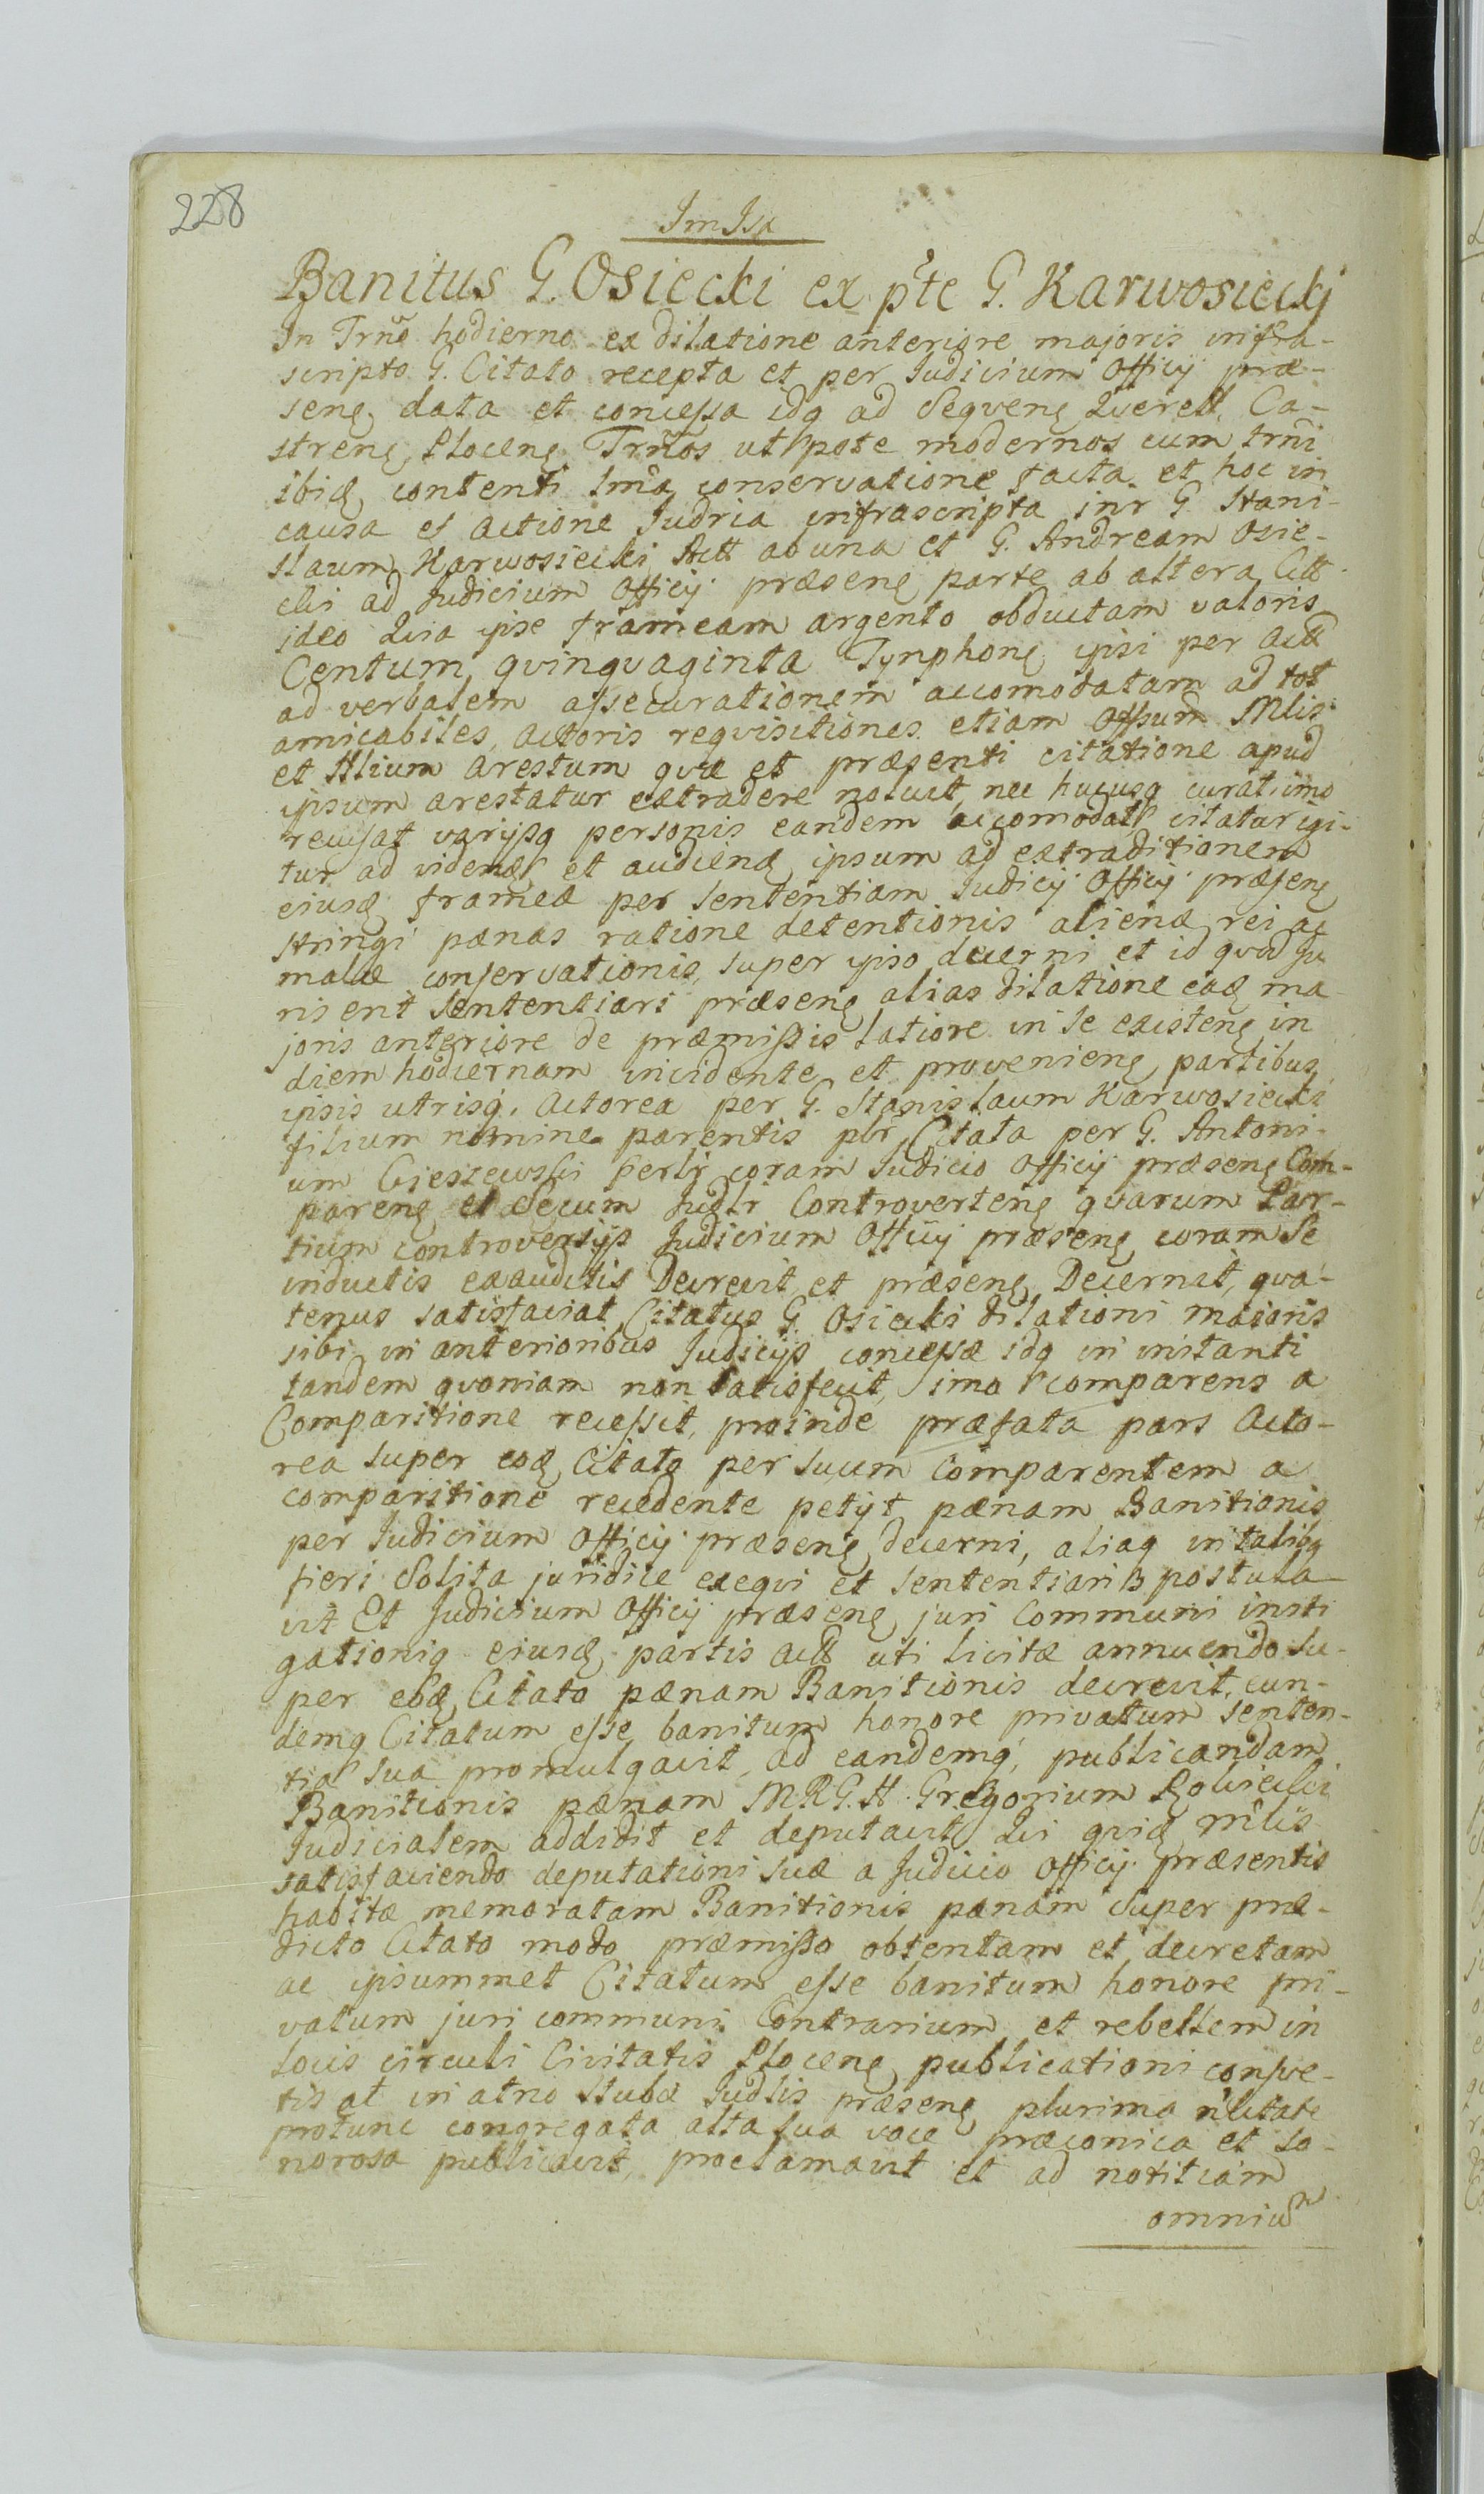 228
Banitus G. Osiecki ex pte G. Karwosiecki
In Trno hodierno ex dilatione anteriore majoris infra-
scripto G. Citato recepta et per Judicium Officij præ-
sens, data et concessa idq ad seqvens Qverell, Ca-
strens, Plocens, Trnos utpote modernos cum trni
ibid, contenti lma conservatione facta et hoc in
causa et actione Judria infrascripta intr G. Stani-
slaum Karwosiecki Act ab una et G. Andream Osie-
cki ad Judicium Officij præsens parte ab altera Citt
ideo Qvia ipse frameam argento obductam valoris
Centum qvinqvaginta Tynphons ipsi per Act
ad verbalem assecurationem accomodatam ad tot
amicabiles, actoris reqvisitiones etiam Offsum Mlis
et Alium arestum qvæ et præsenti citatione apud
ipsum arestatur extradere noluit, nec hucusq curat imo
recusat varijsq personis eandem accomodat, citatur igi-
tur ad videnđ et audienđ, ipsum ad extraditionem
eiusđ, frameæ per sententiam Judicij Officij præsens
stringi pænas ratione detentionis alienæ rei ac
malæ conservationis, super ipso decerni et id qvod Ju
ris erit sententiari præsens, alias dilatione eađ, ma-
joris anteriore de præmissis latiore in se existens, in
diem hodiernam incidente et proveniens, partibus
ipsis utrisq. Actorea per G. Stanislaum Karwosiecki
filium nomine parentis plr, Citata per G. Antoni-
um Cieszewski perlr coram Judicio Officij præsens Com-
parens, et secum Judlr Controvertens, qvarum Par-
tium controversijs Judicium Officij præsens, coram se
inductis exauditis Decrevit et præsens, Decernit, qva-
tenus satisfaciat Citatus G. Osiecki dilationi majoris
sibi in anterioribus Judicijs concessæ idq in instanti
tandem qvoniam non satisfecit, imo comparens a
Comparitione recessit, proinde præfata pars Acto-
rea super eođ, Citato per suum Comparentem a
comparitione recedente petijt pænam Banitionis
per Judicium Officij præsens, decerni, aliaq in talibq
fieri Solita juridice exeqvi et sententiari postula-
vit Et Judicium Officij præsens, juri Communi insti
gationiq eiusđ, partis Act uti licitæ annuendo su-
per eođ, Citato pænam Banitionis decrevit, eun-
demq Citatum esse banitum honore privatum senten-
tia sua promulgavit, ad eandemq, publicandam
Banitionis pænam M.R.G.H. Gregorium
Judicialem addidit et deputavit, Qui qviđ, mlis
satisfaciendo deputationi suæ a Judicio Officij præsentis
habitæ memoratam Banitionis pænam super præ-
dicto Citato modo præmisso obtentam et decretam
ac ipsummet Citatum esse banitum honore pri-
vatum juri communi Contrarium et rebellem in
locis circuli Civitatis Plocens, publicationi consve-
tis at in atrio Stubæ Judlis præsens, plurima nlitate
protunc congregata alta sua voce præconica et so-
norosa publicavit, proclamavit et ad notitiam
omnium